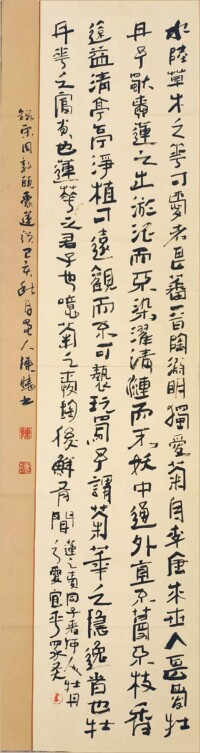 水陸草木之花可愛者甚蕃晋陶淵明獨愛菊自李唐來世人甚愛牡
丹予獨愛蓮之出淤泥而不染濯清漣而不妖中通外直不蔓不枝香
遠益清亭亭淨植可遠觀而不可褻玩焉予謂菊華之隱逸者也牡
丹花之富貴也蓮華之君子也噫菊之愛陶後鮮有聞
蓮之愛同予者何人牡丹
之愛宜乎眾矣
錄宋周敦頤愛蓮說己亥秋月